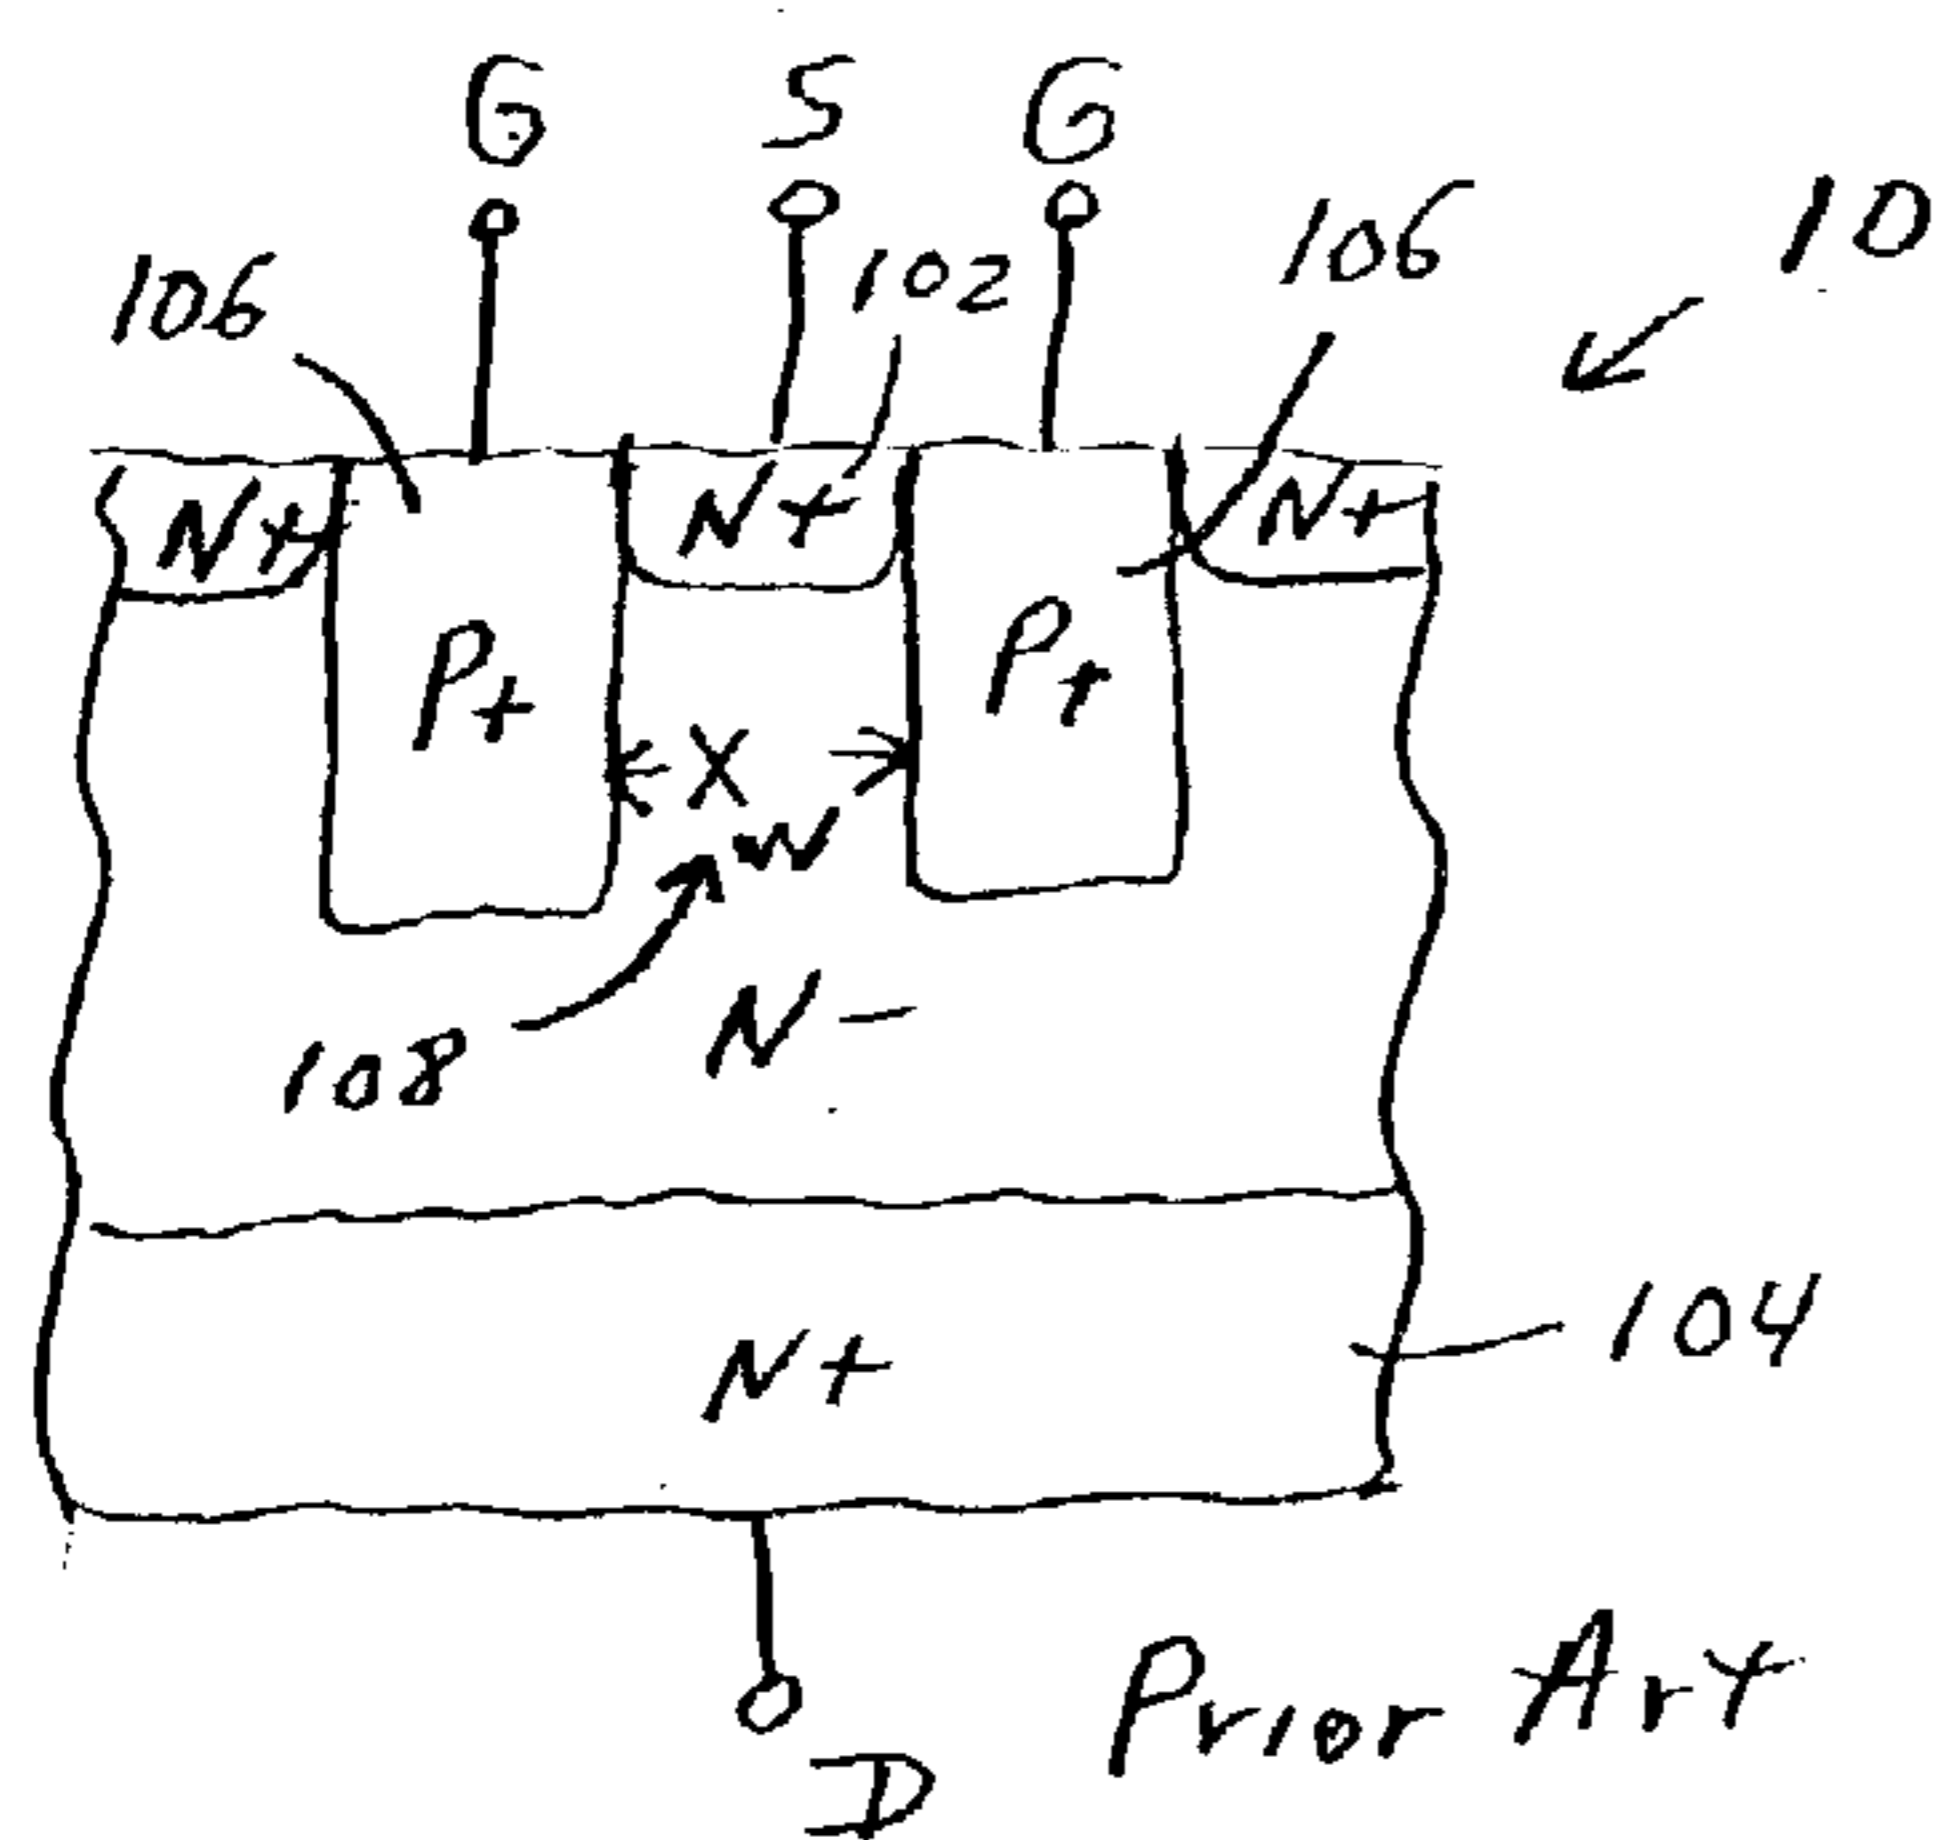 G S G
106 102 106 10
N+ N+ N+
P+ P+
X
W
108 N-
N+ 104
D
Prior Art